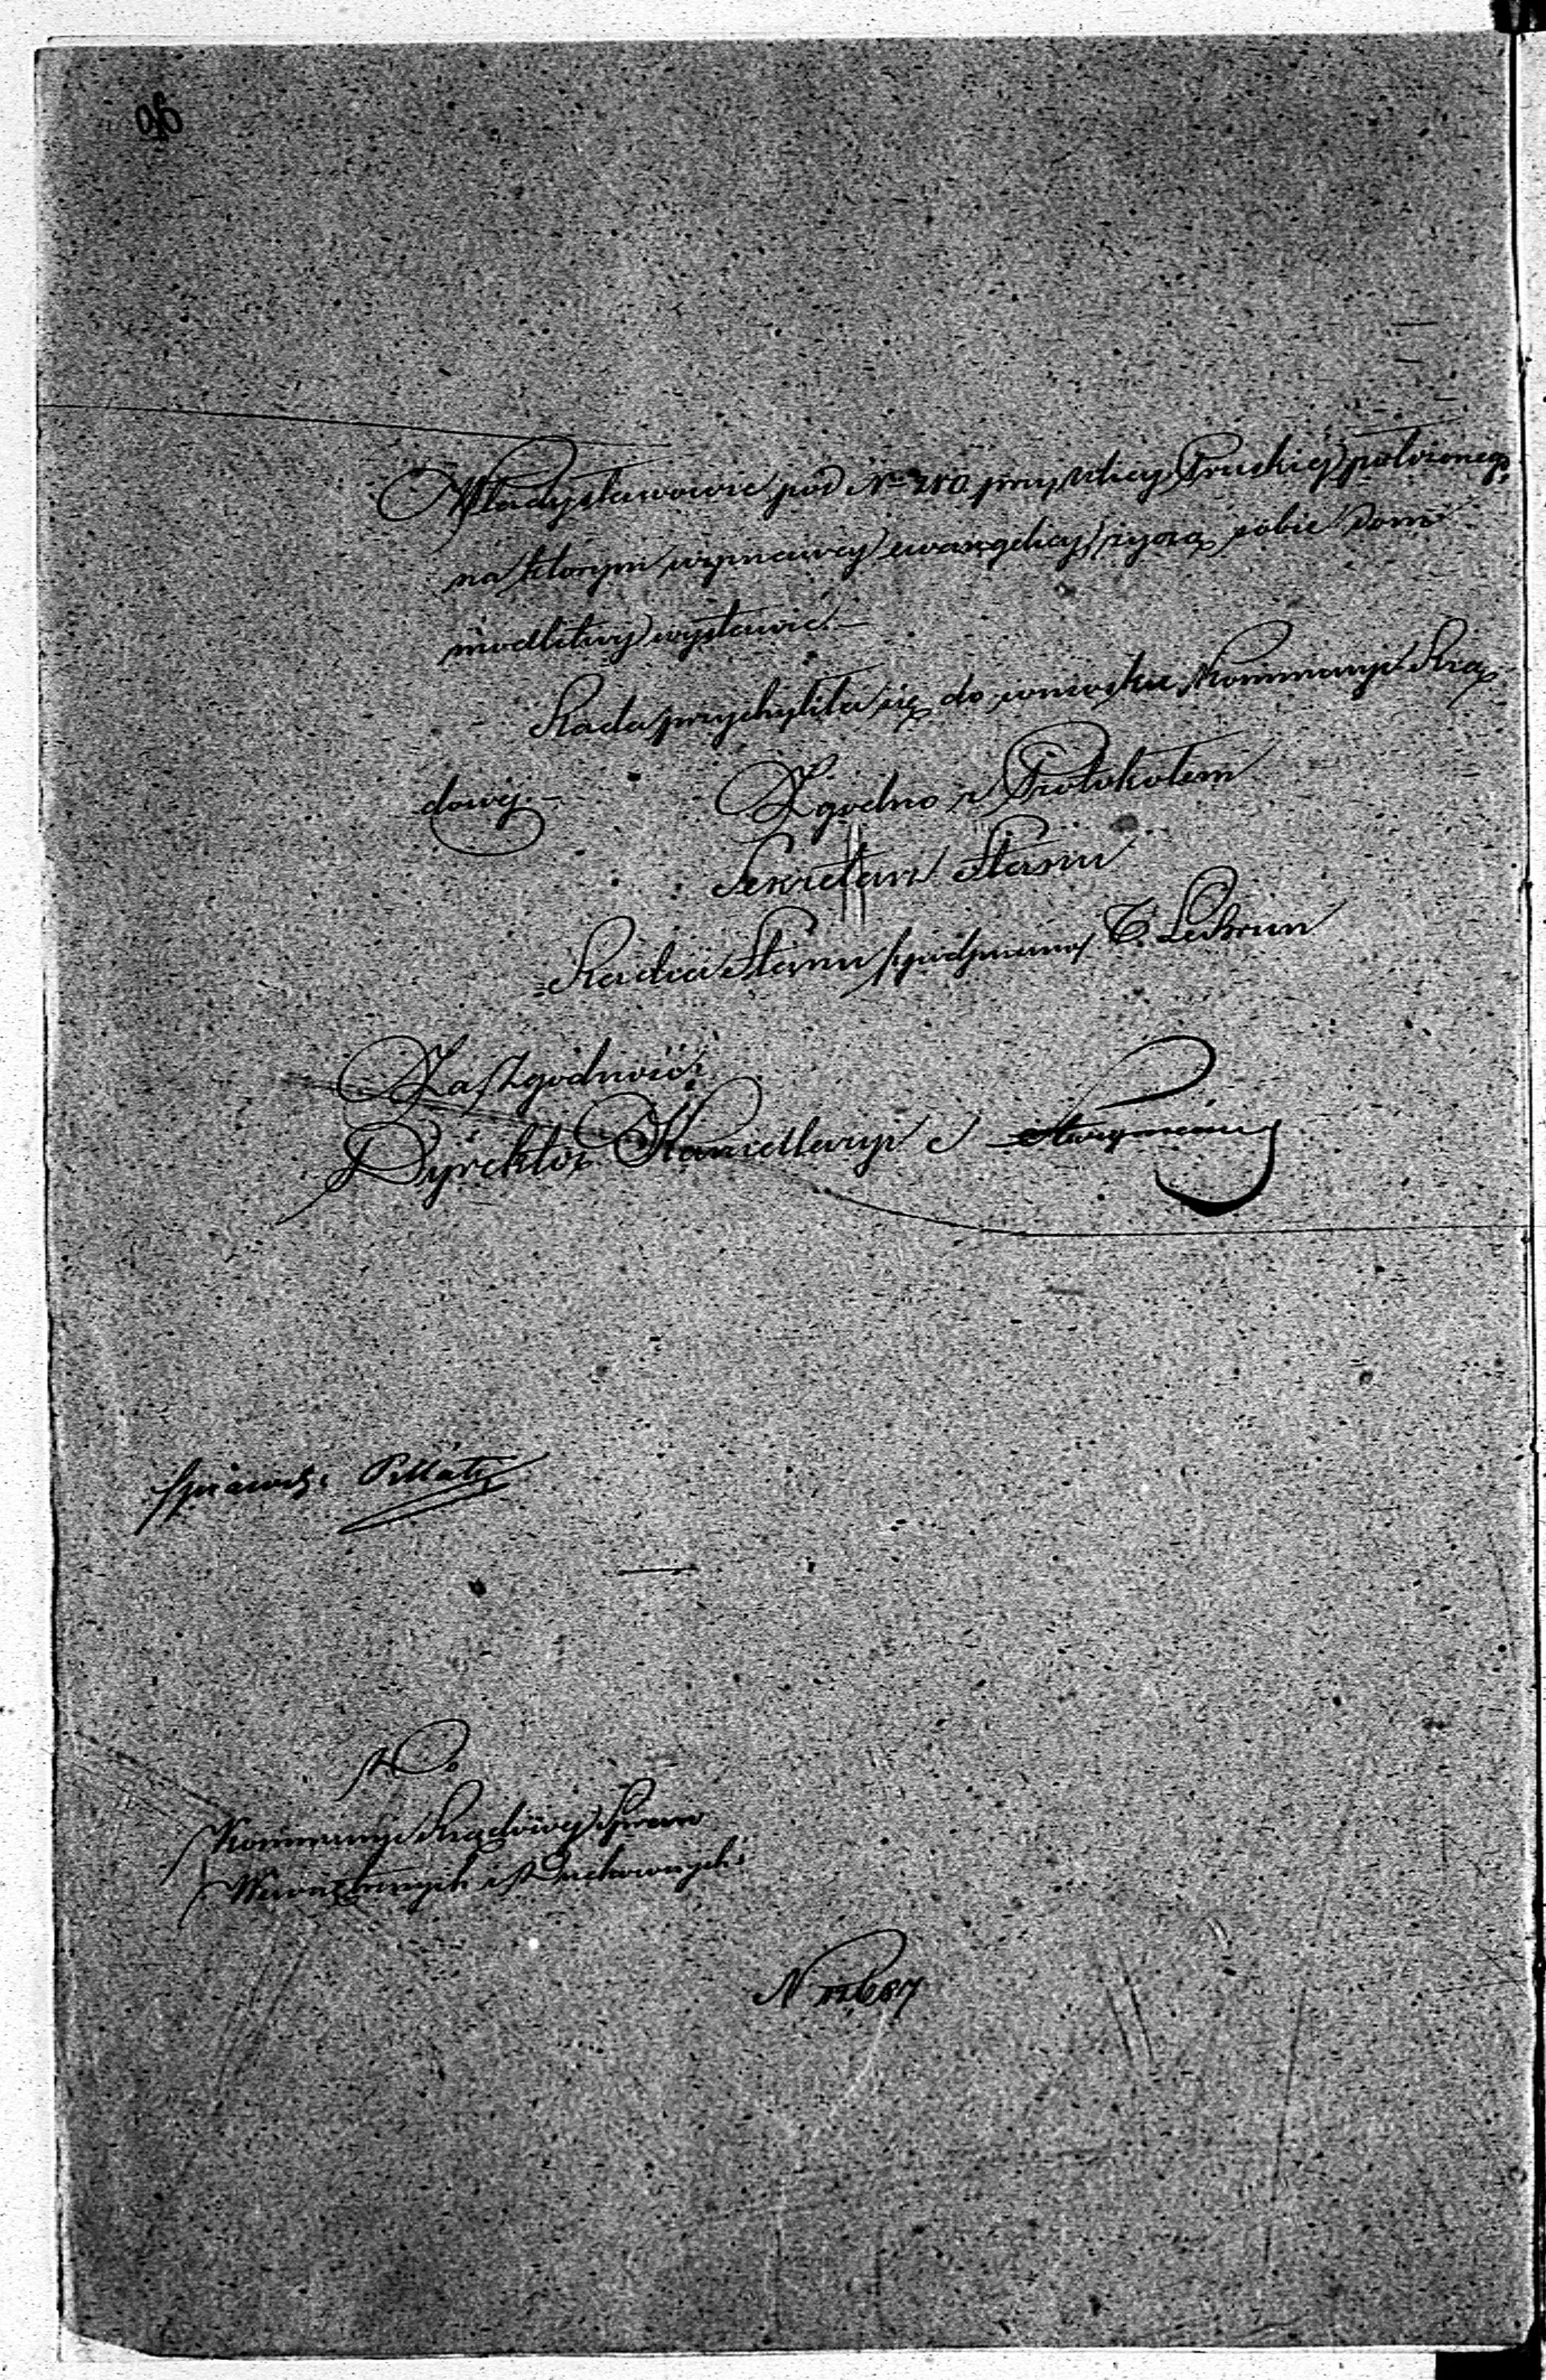 96
Władysławowie pod Nr 250 przy ulicy Pruskiéj położonego,
na którym wyznawcy ewangeliccy życzą sobie dom
modlitwy wystawić. —
Rada przychyliła się do wniosku Kommissyi Rzą-
dowéj. —
Zgodno z Protokołem
Sekretarz Stanu
Radca Stanu /podpisano/ T. Lebrun
Za Zgodność
Dyrektor Kancellaryi
Do
Kommissyi Rządowéj Spraw
Wewnętrznych i Duchownych
N 12,687